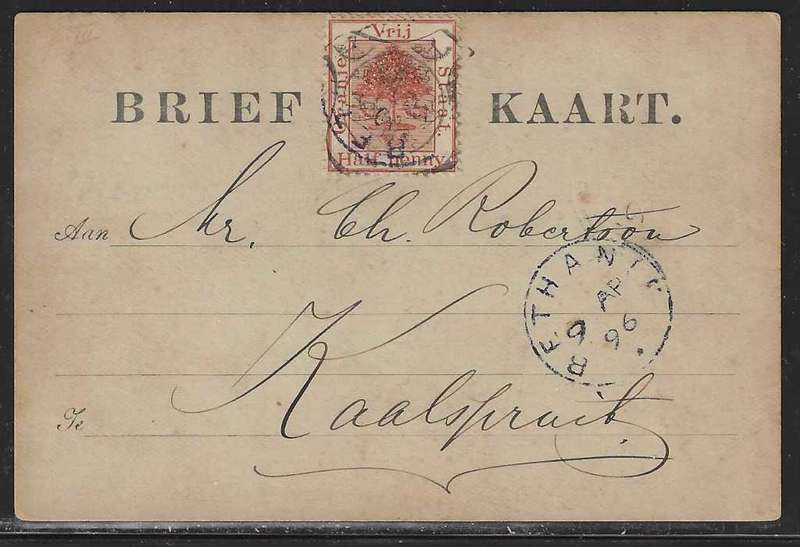 Vrij
Oranje Staat.
Half-penny
BRIEF KAART.
Aan Mr. Ch. Robertson
BETHANIE
AP
9
96
Te Kaalspruit.